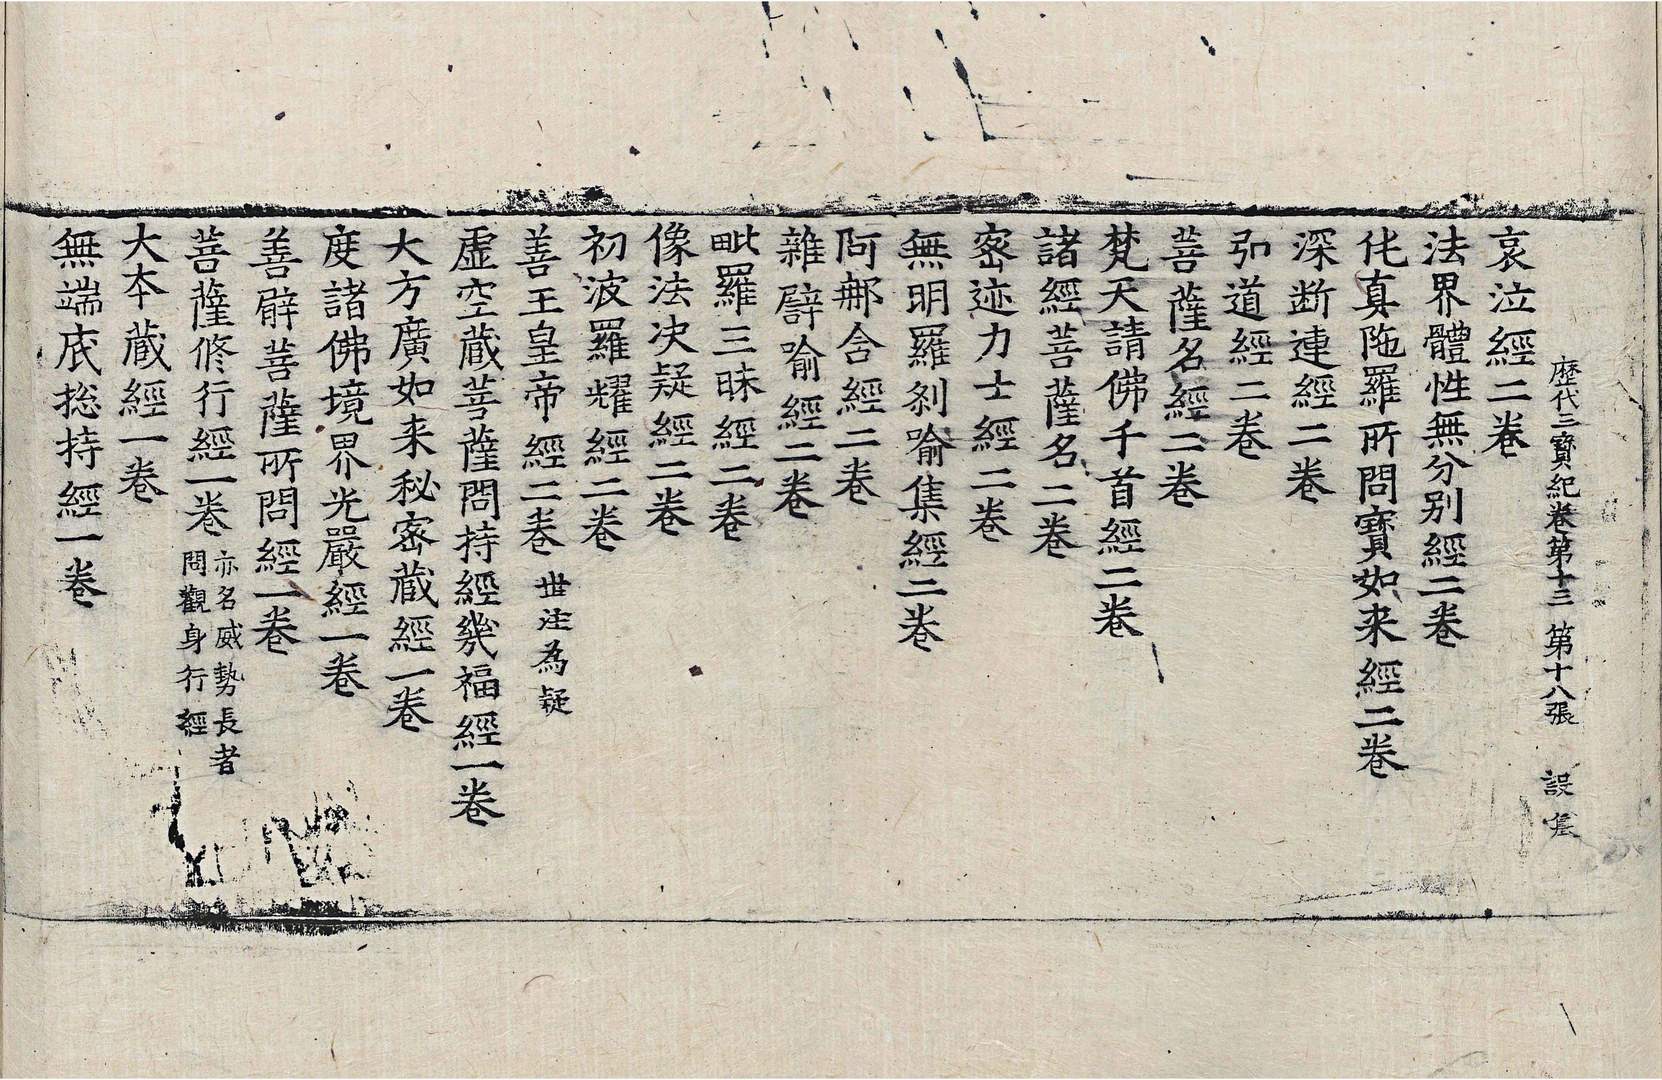 歷代三寶紀卷第十三 第十八張 設
哀泣經二卷
法界體性無分别經二卷
仛真陁羅所問寶如来經二卷
深断連經二卷
引道經二卷
菩薩名經二卷
梵天請佛千首經二卷
諸經菩薩名二卷
宻迹力士經二卷
無明羅剎喻集經二卷
阿那含經二卷
雜譬喻經二卷
毗羅三昧經二卷
像法决疑經二卷
初波羅耀經二卷
善王皇帝經二卷 世注為疑
虚空蔵菩薩問持經幾福經一卷
大方廣如来秘宻蔵經一卷
度諸佛境界光嚴經一卷
善臂菩薩所問經一卷
菩薩修行經一卷 亦名威勢長者
問觀身行經
大夲蔵經一卷
無端底捴持經一卷